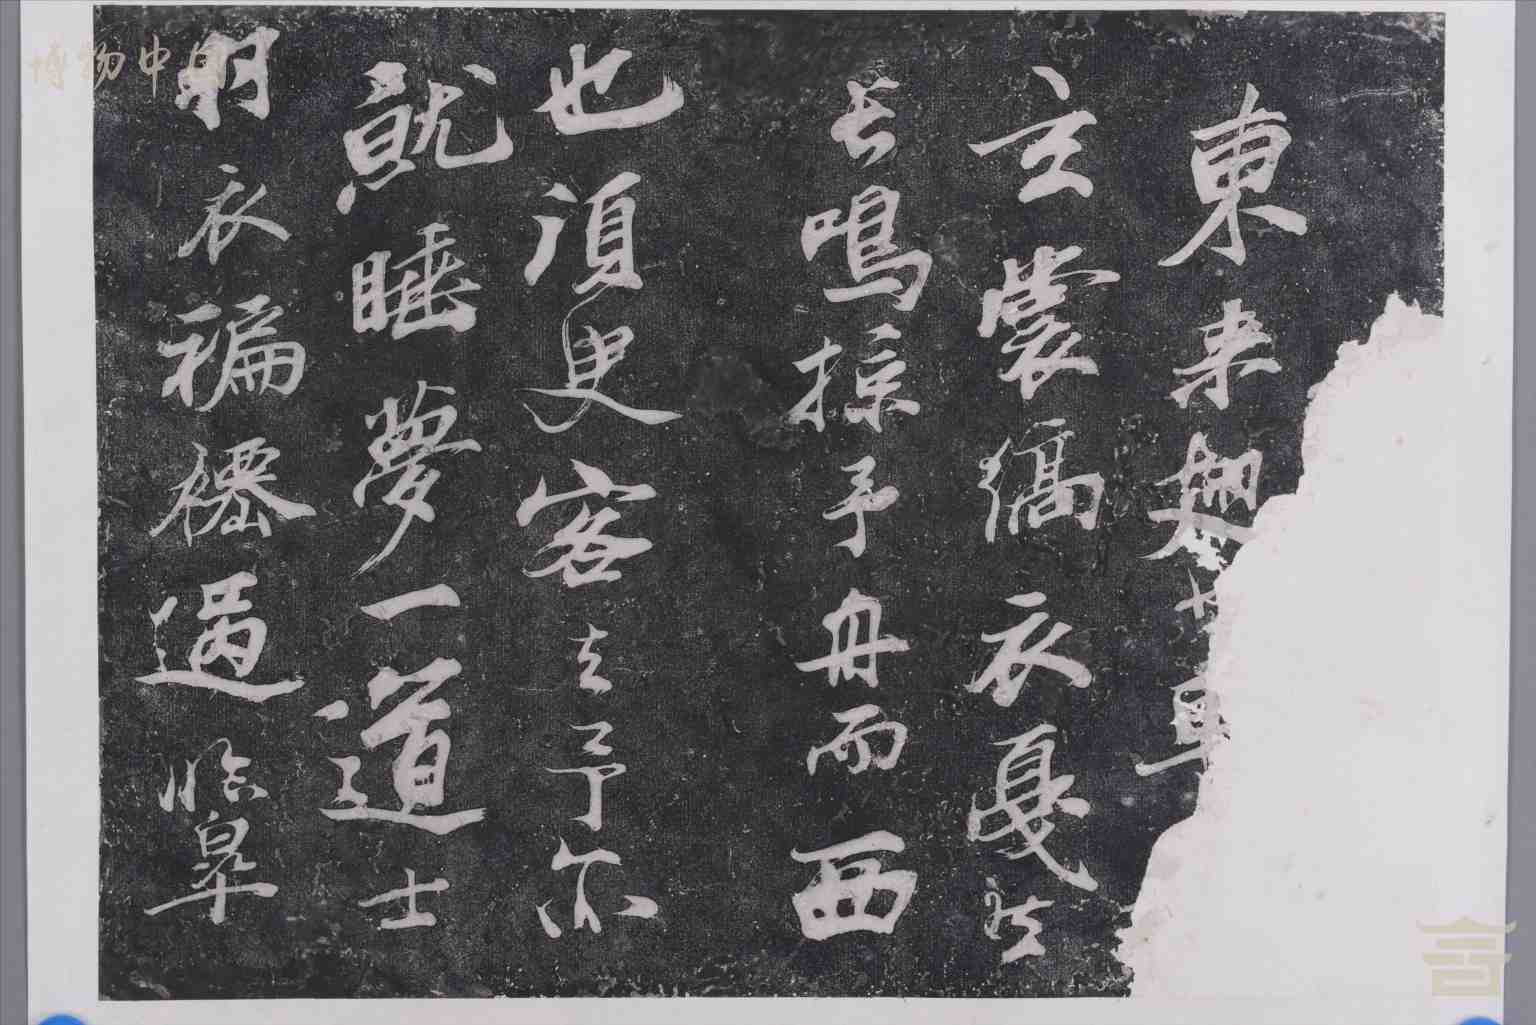 東来翅車
玄裳縞衣戛然
長鳴掠予舟而西
也須臾客去予亦
就睡夢一道士
羽衣褊褼過臨皋
博物中国